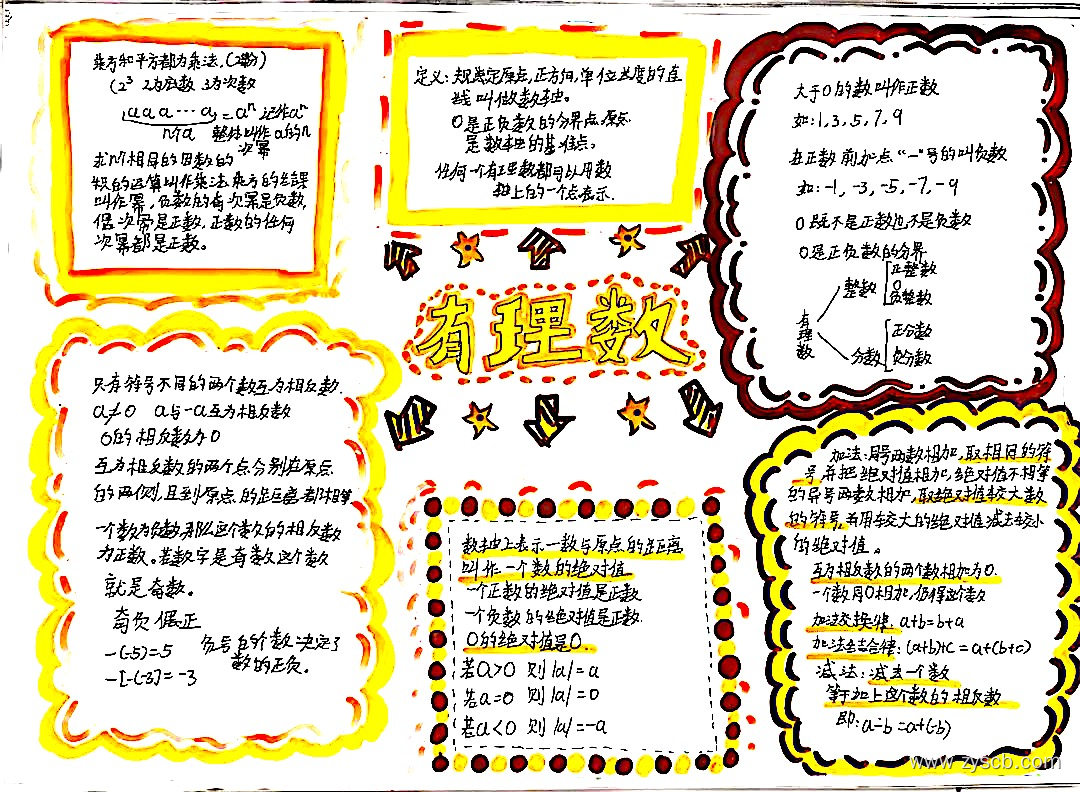 乘方和平方都为乘法.(2数)
(2³ 2为底数 3为次数
aaa…a=aⁿ 记作aⁿ
n个a 整体叫作a的n次幂
求n个相同的因数的
积的运算叫作乘法乘方的结课
叫作幂,负数的奇次幂是负数,
偶次幂是正数,正数的任何
次幂都是正数。
定义:规定原点,正方向,单位长度的直
线叫做数轴。
0是正负数的分界点,原点
是数轴的基准点,
任何一个有理数都可以用数
轴上的一个点表示.
大于0的数叫作正数
如:1,3,5,7,9
在正数前加点“-”号的叫负数
如:-1,-3,-5,-7,-9
0既不是正数也不是负数
0是正负数的分界
有理数
整数
正整数
0
负整数
分数
正分数
负分数
有理数
只有符号不同的两个数互为相反数.
a≠0 a与-a互为相反数
0的相反数为0
互为相反数的两个点分别在原点
的两侧,且到原点的距离都相等
一个数为负数那么这个数的相反数
为正数。若数字是奇数这个数
就是奇数。
奇负偶正
-(-5)=5
-[-(-3)]=-3
负号的个数决定了
数的正负。
数轴上表示一数与原点的距离
叫作一个数的绝对值
一个正数的绝对值是正数
一个负数的绝对值是正数.
0的绝对值是0.
若a>0 则|a|=a
若a=0 则|a|=0
若a<0 则|a|=-a
加法:同号两数相加,取相同的符
号,并把绝对值相加,绝对值不相等
的异号两数相加,取绝对值较大数
的符号,并用较大的绝对值减去较小
的绝对值。
互为相反数的两个数相加为0.
一个数同0相加,仍得这个数
加法交换律:a+b=b+a
加法结合律:(a+b)+c=a+(b+c)
减法:减去一个数
等于加上这个数的相反数
即:a-b=a+(-b)
www.zyscb.com